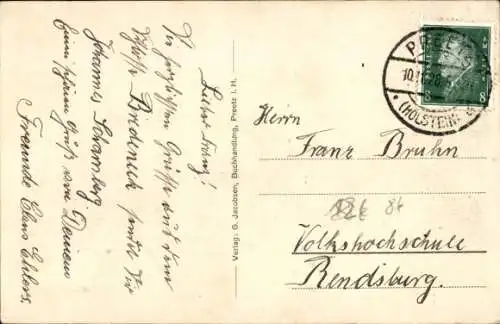 Lieber Franz!
Die herzlichsten Grüße aus dem
Schloß Bredeneck sendet Dir
Johannes Schramberg
Einen schönen Gruß von Deinem
Freunde Claus Ehlers.
Verlag: G. Jacobsen, Buchhandlung, Preetz i. H.
PREETZ
10.11.28
(HOLSTEIN)
8
Herrn
Franz Bruhn
84
Volkshochschule
Rendsburg.